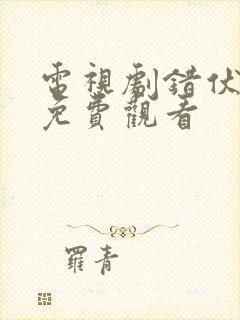 電視劇錯伏
免費觀看
羅青